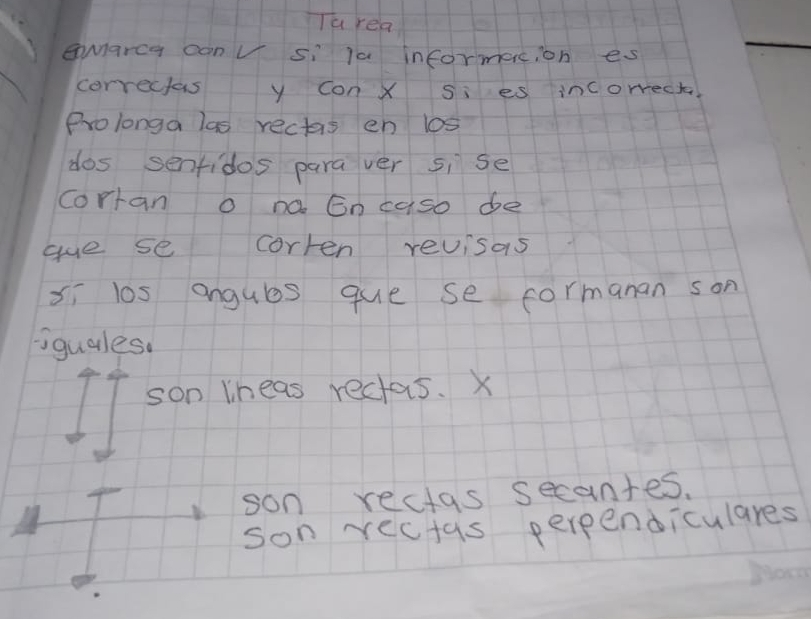 Tarea
Marca con ✓ si la informacion es
correctas y con X si es incorrecta.
Prolonga las rectas en los
dos sentidos para ver si se
cortan o no. En caso de
que se corten revisas
si los angulos que se formanan son
iguales.
son lineas rectas. X
son rectas secantes.
son rectas perpendiculares